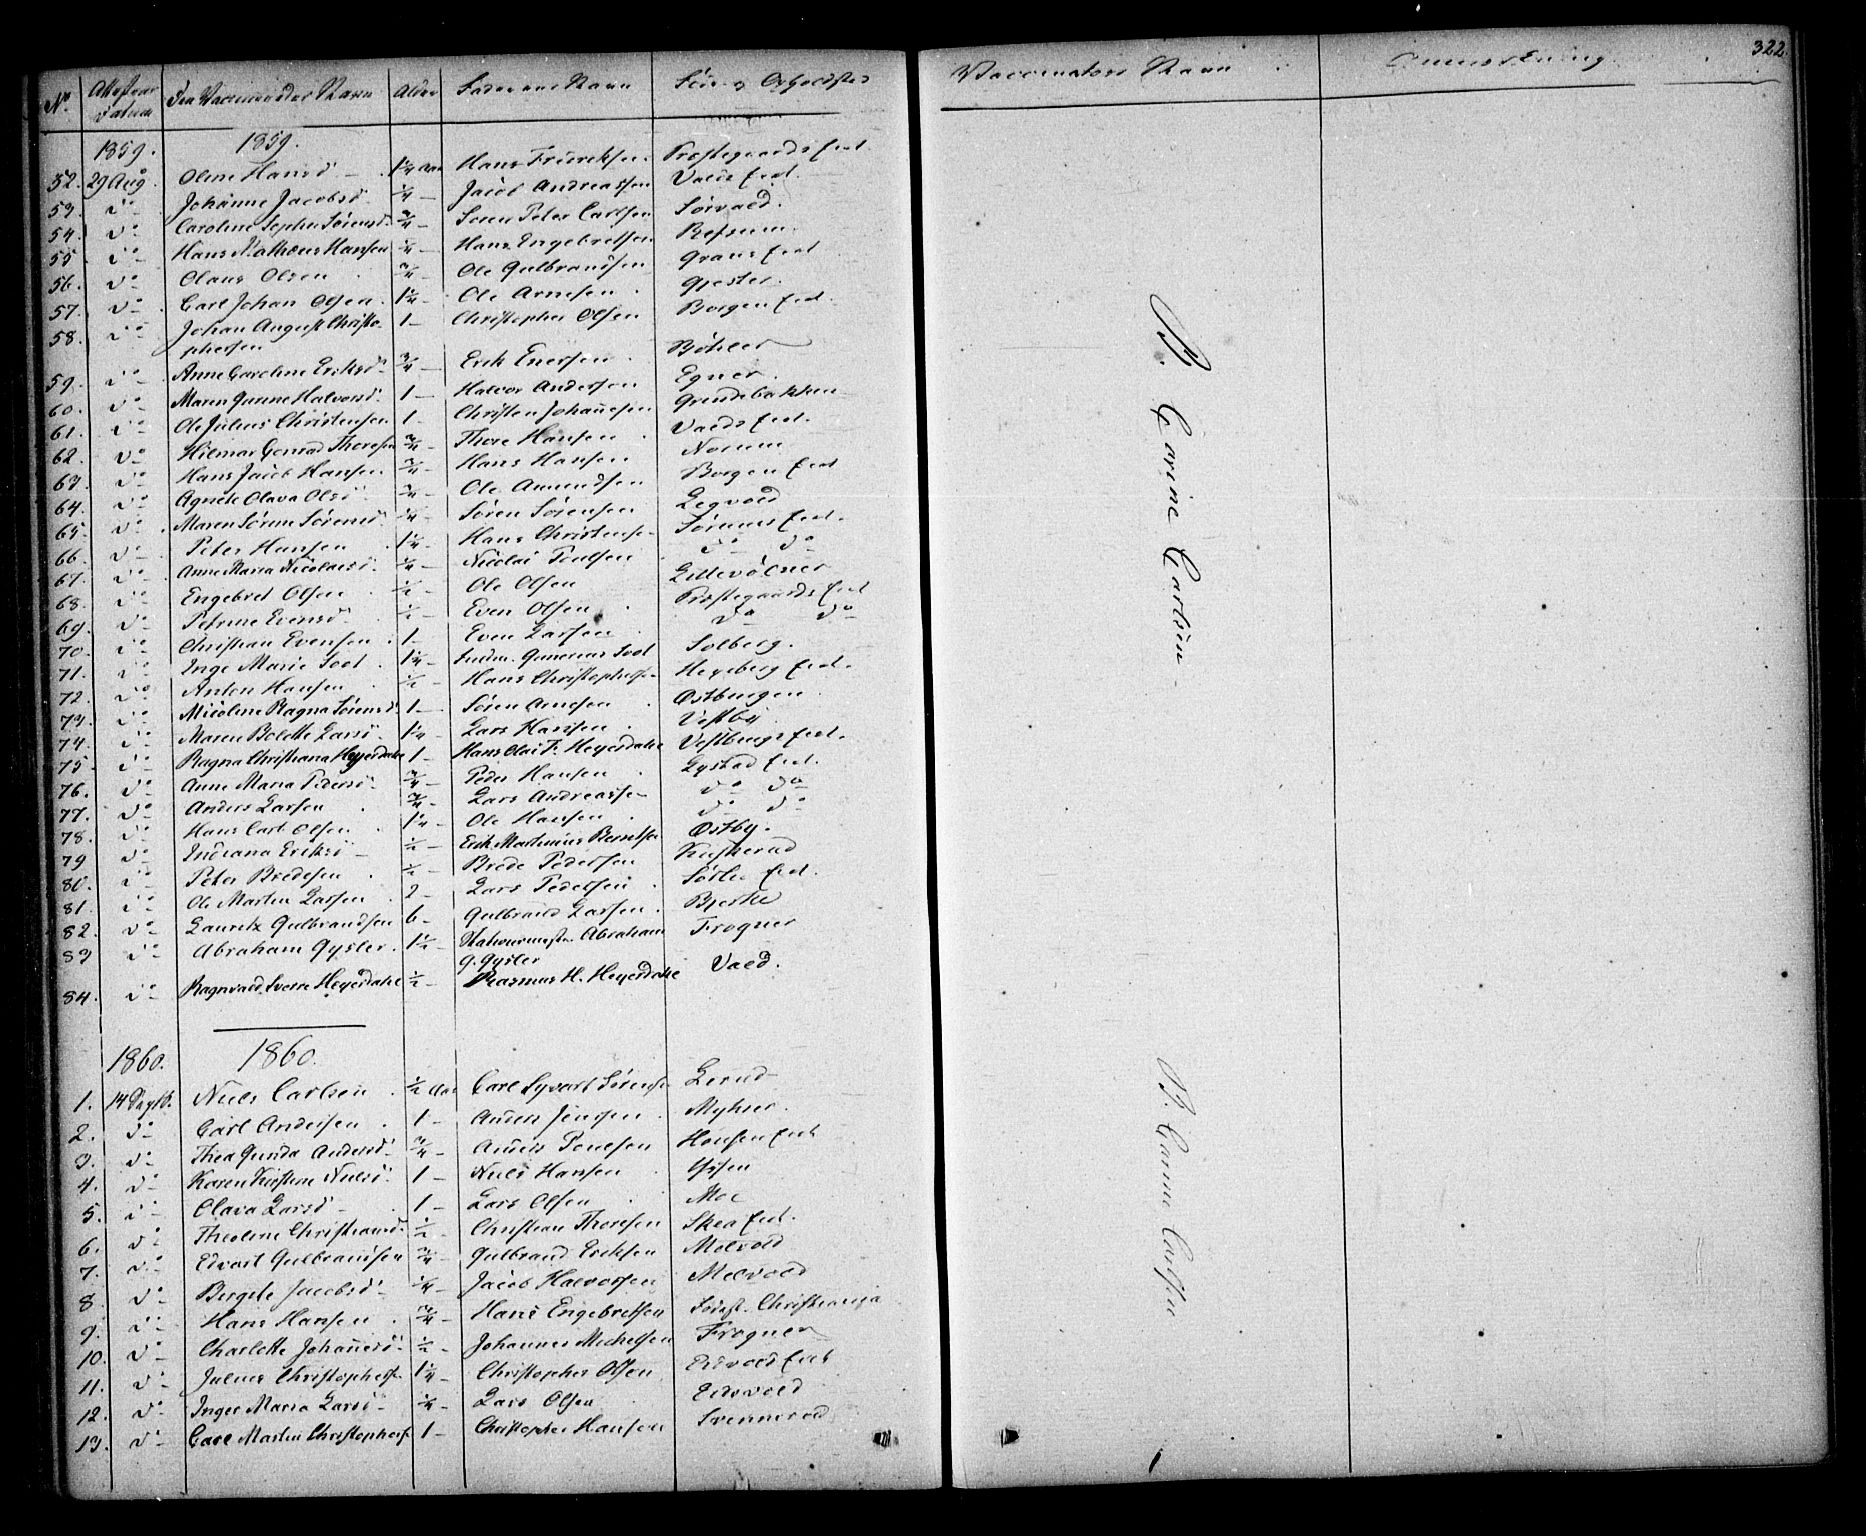 322.
No. Attestens Datum De Vaccineredes Navn Alder Faderens Navn Føde- og Opholdsted Vaccinators Navn Anmærkning
1859. 1859.
52. 29 Aug. Oline Hansd. 1 1/4 Aar Hans Fredriksen Præstegaards Eed.
53. do Johanne Jacobsd. 1/4 Jacob Andreassen Valds Eed.
54. do Caroline Sophie Sørensd. 3/4 Søren Peter Carlsen Sørvald.
55. do Hans Matheus Hansen 1/4 Hans Engebretsen Refsum.
56. do Olaus Olsen 3/4 Ole Gulbrandsen
57. do Carl Johan Olsen 1 1/4 Ole Arnesen
58. do Johan August Christophersen 1 Christopher Olsen Borgen Eed.
59. do Anne Caroline Eriksd. 3/4 Erik Enersen Bøhler
60. do Maren Gunne Halvorsd. 1 Halvor Andersen Egner.
61. do Ole Julius Christensen 1 Christen Johannesen Grindebakken
62. do Hilmar Conrad Thoresen 3/4 Thore Hansen Valds Eed.
63. do Hans Jacob Hansen 3/4 Hans Hansen
64. do Agnete Olava Olsd. 3/4 Ole Amundsen Borgen Eed
65. do Maren Sørine Sørensd. 1/4 Søren Sørensen
66. do Peter Hansen 1 1/4 Hans Christensen Sørums Eed.
67. do Anne Maria Nicolaisd. 1/4 Nicolai Poulsen do do
68. do Engebret Olsen 1/2 Ole Olsen
69. do Petrine Evensd. 1/2 Even Olsen Præstegaards Eed
70. do Christian Evensen 1 Even Larsen do do
71. do Inge Marie Soot 1 1/4 Gunerius Soot Solberg.
72. do Anton Hansen 1/2 Hans Christophersen Hegeberg Eed.
73. do Nicoline Ragna Sørensd. 1 Søren Arnesen Østbyengen
74. do Maren Bolette Larsd. 1 1/4 Lars Hansen Vestby
75. do Ragna Christiana Heyerdahl 1 Hans Clai F. Heyerdahl
76. do Anne Maria Pedersd. 3/4 Peder Hansen Lystad Eed.
77. do Anders Larsen 3/4 Lars Andreassen do do
78. do Hans Carl Olsen 1 1/4 Ole Hansen do do
79 do Indiana Eriksd. 1/2 Erik Martinius Berntsen Østby.
80. do Peter Bredesen 1/2 Brede Pedersen
81. do Ole Martin Larsen 2 Lars Pedersen Sørlie Eed.
82. do Lauritz Gulbrandsen 6 Gulbrand Larsen Bjerke
83 do Abraham Gysler 1 1/2 Abraham G. Gysler Frogner
84. do Ragnvald Sverre Heyerdahl 1/2 Rasmus H. Heyerdahl Vald.
B. Carine Carlsen
1860. 1860.
1. 14 Septb. Niels Carlsen 1/2 Aar Carl Syvert Sørensen Lerud
2. do Carl Andersen 1 Anders Jensen Myhrer.
3. do Thea Gunda Andersd. 3/4 Anders Poulsen
4. do Karen Kirstine Nielsd. 1 Niels Hansen
5. do Olava Larsd. 1 Lars Olsen Moe
6. do Theoline Christiansd. 1/2 Christian Thoresen Skea Eed.
7. do Edvart Gulbrandsen 3/4 Gulbrand Eriksen Melvold
8. do Bergete Jacobsd. 1/4 Jacob Halvorsen Melvold
9. do Hans Hansen 3/4 Hans Engebretsen Fødest. Christiania
10. do Charlotte Johannesd. 1/2 Johannes Michelsen Frogner
11. do Julius Christophersen 1 1/4 Christopher Olsen Eidsvold Eed
12. do Inger Maria Larsd. 1/4 Lars Olsen Eidsvold
13. do Carl Martin Christophersen 1 Christopher Hansen Svennerød
B. Carine Carlsen